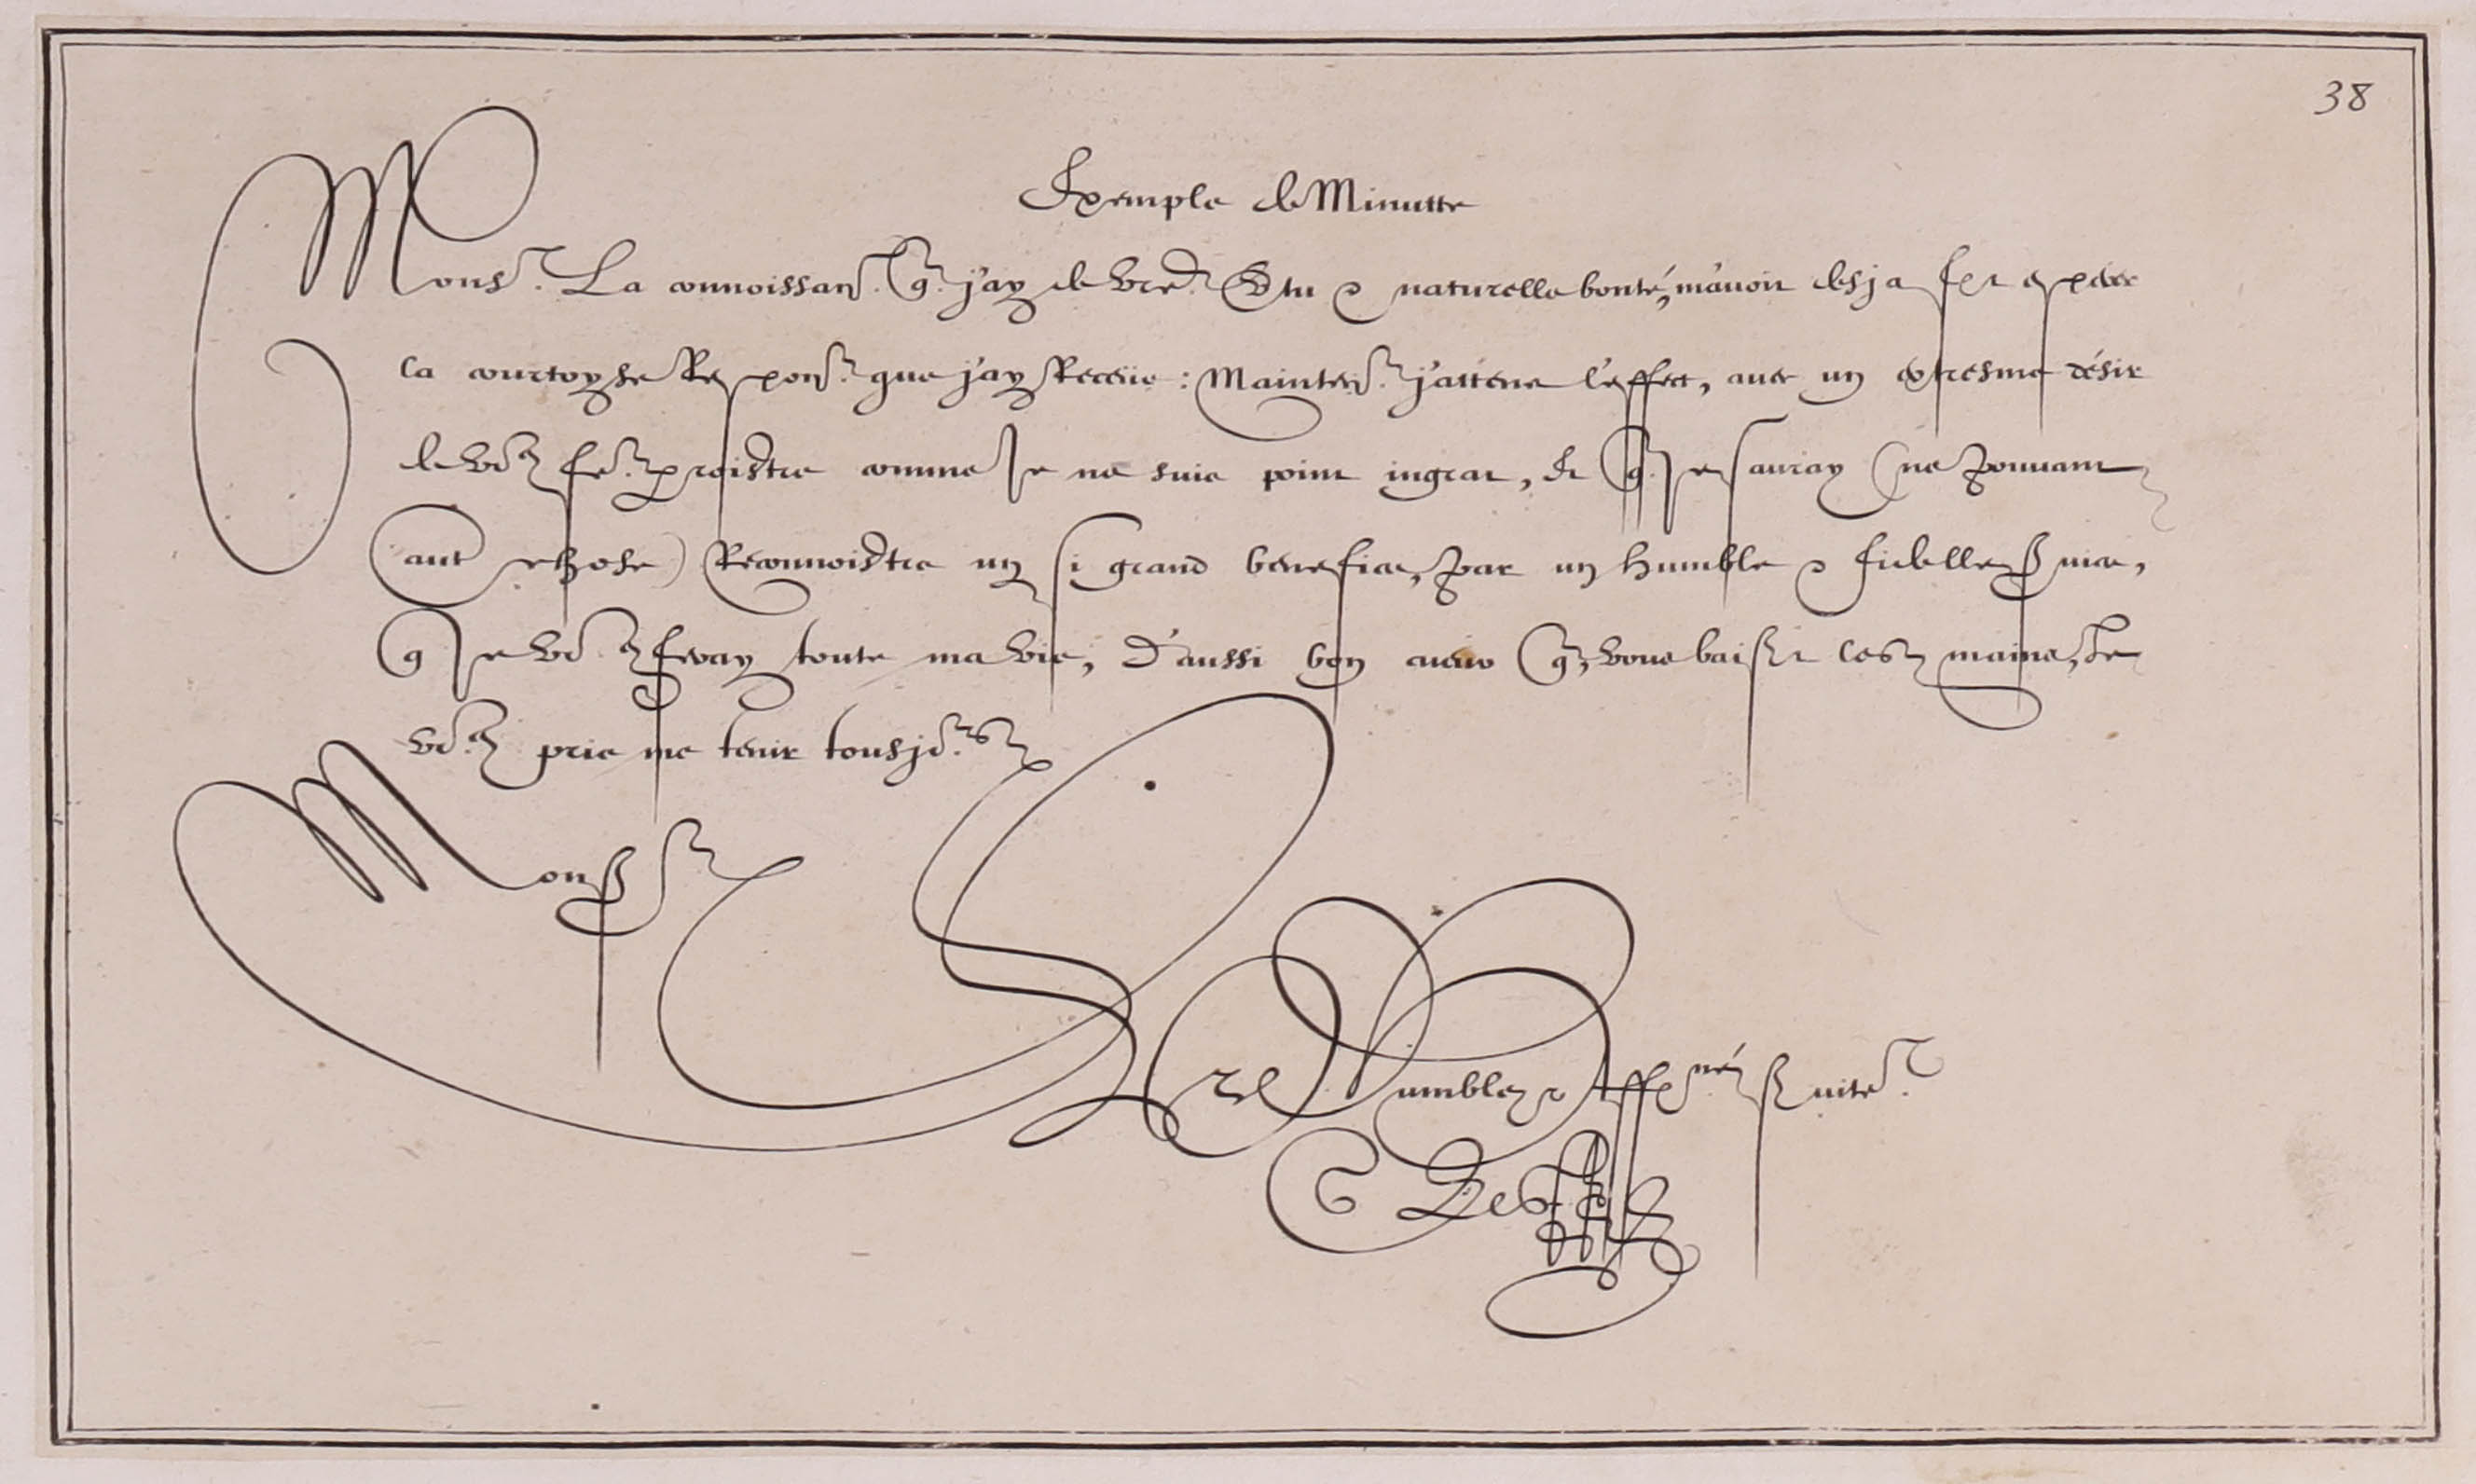 38
Exemple de Minutte
Mons.r La connoissan. q. j'ay de vre. Vtu & naturelle bonté, m'avoit desja fet esperer
la courtoyse Respons. que j'ay Receüe : Mainten. j'attens l'effect, avec un extresme désir
de vo. fe. proistre comme Je ne suis point ingrat, Et q. Je sauray (ne pouvant
autre chose) Reconnoistre un si grand benefice, par un humble & fidelle service,
q Je vo. feray toute ma vie, D'aussi bon cueur q, vous baise les mains, Je
vo. prie me tenir tousjo.rs
Mons.r
Vre Humble & Affné servite.r